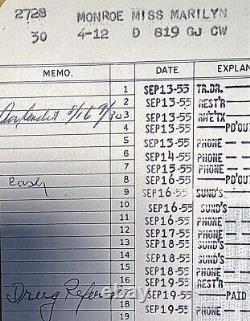 2728 MONROE MISS MARILYN
30 4-12 D 819 GJ CW
MEMO. DATE EXPLAN
1 SEP13-55 TR.DR.
2 SEP13-55 REST'R
3 SEP13-55
4 SEP13-55 PD'OUT
5 SEP13-55 PHONE
6 SEP14-55 PHONE
7 SEP15-55 PHONE
8 SEP16-55 PD'OUT
9 SEP16-55 SUND'S
10 SEP16-55 SUND'S
11 SEP16-55 PHONE
12 SEP17-55 PHONE
13 SEP18-55 PHONE
14 SEP18-55 SUND'S
15 SEP19-55 PHONE
16 SEP19-55 REST'R
SEP19-55 PAID
18 SEP19-55 PHONE
19 PHONE
Drug